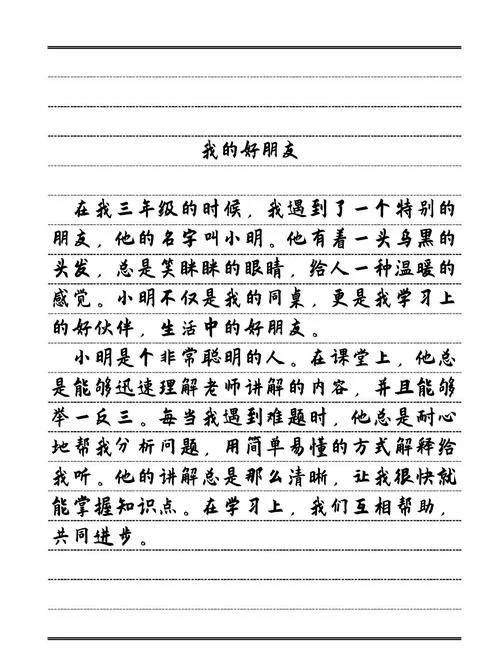 我的好朋友
在我三年级的时候，我遇到了一个特别的
朋友，他的名字叫小明。他有着一头乌黑的
头发，总是笑眯眯的眼睛，给人一种温暖的
感觉。小明不仅是我的同桌，更是我学习上
的好伙伴，生活中的好朋友。
小明是个非常聪明的人。在课堂上，他总
是能够迅速理解老师讲解的内容，并且能够
举一反三。每当我遇到难题时，他总是耐心
地帮我分析问题，用简单易懂的方式解释给
我听。他的讲解总是那么清晰，让我很快就
能掌握知识点。在学习上，我们互相帮助，
共同进步。